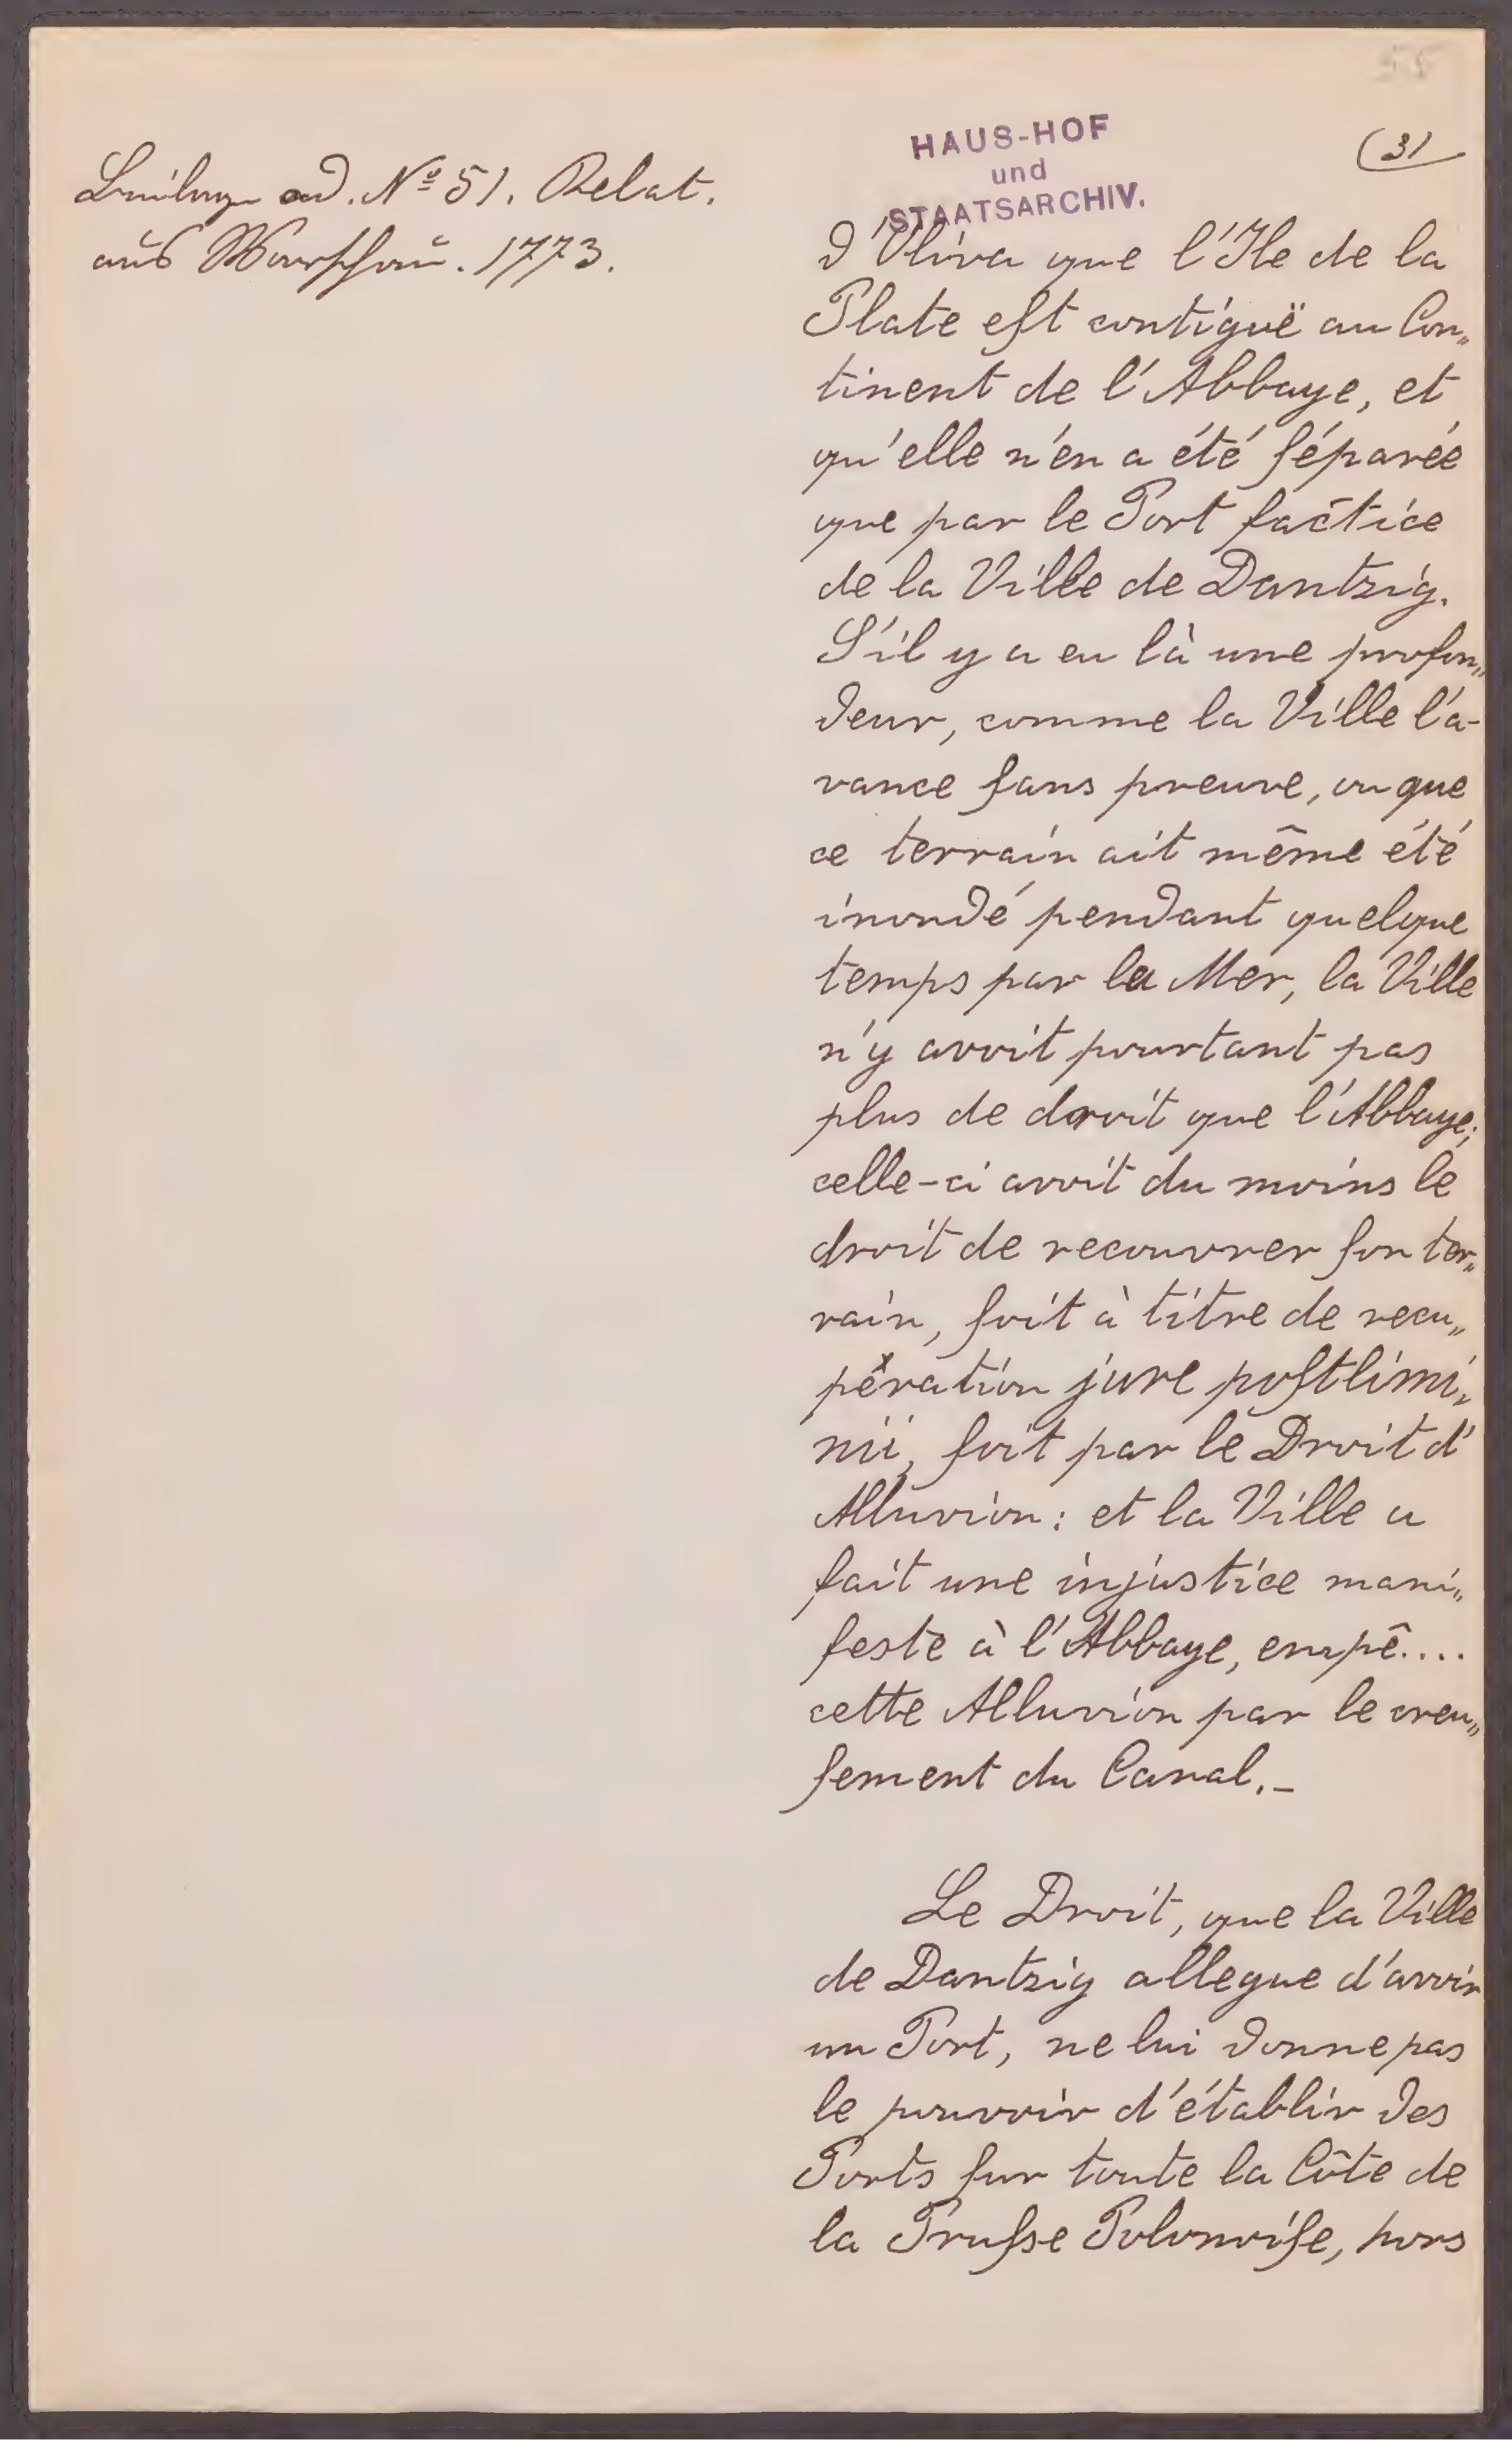 55
Beilage ad. Nº 51. Relat.
aus Warschau. 1773.
HAUS-HOF
und
STAATSARCHIV.
(31
d'Oliva que l'Ile de la
Plate eſt contiguë au Con„
tinent de l'Abbaye, et
qu'elle n'en a été ſéparée
que par le Port factice
de la Ville de Dantzig.
S'il y a eu là une profon„
deur, comme la Ville l'a-
vance ſans preuve, ou que
ce terrain ait même été
inondé pendant quelque
temps par la Mer, la Ville
n'y avoit pourtant pas
plus de droit que l'Abbaye;
celle-ci avoit du moins le
droit de recouvrer ſon ter„
rain, ſoit à titre de recu„
pération jure poſtlimi„
nii, ſoit par le Droit d'
Alluvion: et la Ville a
fait une injustice mani„
feste à l'Abbaye, empê....
cette Alluvion par le creu„
ſement du Canal.–
Le Droit, que la Ville
de Dantzig allegue d'avoir
un Port, ne lui donne pas
le pouvoir d'établir des
Ports ſur toute la Côte de
la Pruſse Polonoiſe, hors